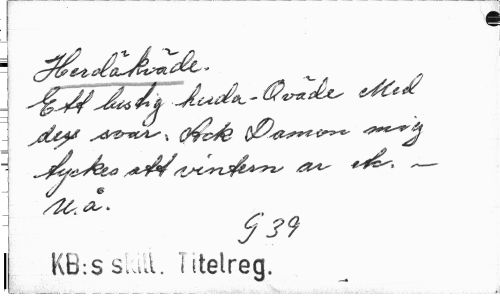 Herdäkväde.
Ett lustig herda-Qväde Med
dess svar. Ack Damon mig
tyckes att vintern är etc. —
U.å.
G 39
KB:s skill. Titelreg.